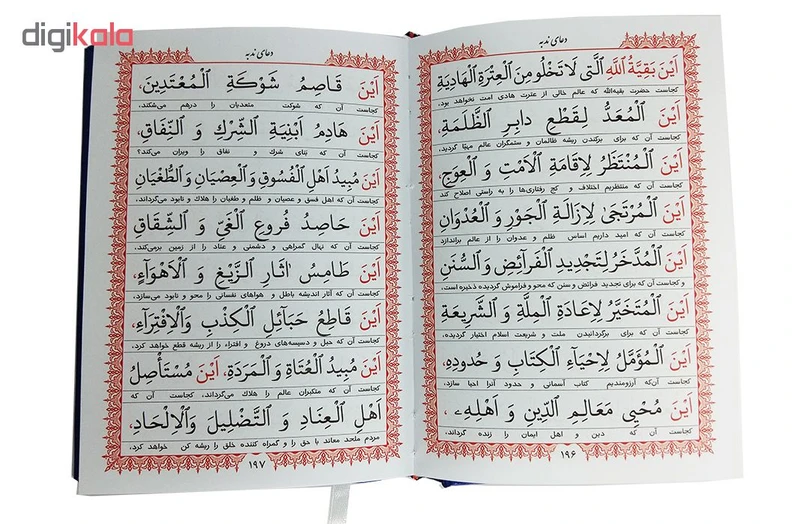 digikala
دعای ندبه
اَیْنَ بَقِیَّةُ اللَّهِ الَّتی لَا تَخْلُو مِنَ الْعِتْرَةِ الْهَادِیَةِ
کجاست حضرت بقیه‌الله که عالم خالی از عترت هادی امت نخواهد بود.
اَیْنَ الْمُعَدُّ لِقَطْعِ دابِرِ الظَّلَمَةِ،
کجاست آن که برای برکندن ریشه ظالمان و ستمگران عالم مهیّا گردید.
اَیْنَ الْمُنْتَظَرُ لِاِقَامَةِ الْاَمْتِ وَ الْعِوَجِ،
کجاست آن که منتظریم اختلاف و کج رفتاری‌ها را به راستی اصلاح کند
اَیْنَ الْمُرْتَجیٰ لِاِزَالَةِ الْجَوْرِ وَ الْعُدْوَانِ
کجاست آن که امید داریم اساس ظلم و عدوان را از عالم براندازد
اَیْنَ الْمُدَّخَرُ لِتَجْدِیدِ الْفَرآئِضِ وَ السُّنَنِ
کجاست آن که برای تجدید فرائض و سنن که محو و فراموش گردیده ذخیره است،
اَیْنَ الْمُتَخَیَّرُ لِاِعَادَةِ الْمِلَّةِ وَ الشَّریعَةِ
کجاست آن که برای برگردانیدن ملت و شریعت اسلام اختیار گردیده،
اَیْنَ الْمُؤَمَّلُ لِاِحْیآءِ الْکِتَابِ وَ حُدُودِهِ،
کجاست آن‌که آرزومندیم کتاب آسمانی و حدود آنرا احیا سازد،
اَیْنَ مُحْیِی مَعَالِمِ الدِّینِ وَ اَهْلِهِ،
کجاست آن که دین و اهل ایمان را زنده گرداند،
۱۹۶
دعای ندبه
اَیْنَ قَاصِمُ شَوْکَةِ الْمُعْتَدِینَ،
کجاست آن که شوکت متعدیان را درهم می‌شکند،
اَیْنَ هَادِمُ اَبْنِیَةِ الشِّرْكِ وَ النِّفَاقِ،
کجاست آن که بنای شرك و نفاق را ویران می‌کند؟
اَیْنَ مُبِیدُ اَهْلِ الْفُسُوقِ وَ الْعِصْیَانِ وَ الطُّغْیَانِ
کجاست آن که اهل فسق و عصیان و ظلم و طغیان را هلاك و نابود می‌گرداند،
اَیْنَ حَاصِدُ فُرُوعِ الْغَیِّ وَ الشِّقَاقِ
کجاست آن که نهال گمراهی و دشمنی و عناد را از زمین برمی‌کند.
اَیْنَ طَامِسُ اٰثَارِ الزَّیْغِ وَ الْاَهْوَآءِ،
کجاست آن که آثار اندیشه باطل و هواهای نفسانی را محو و نابود می‌سازد،
اَیْنَ قَاطِعُ حَبَآئِلِ الْکِذْبِ وَ الْاِفْتِرَآءِ،
کجاست آن که حبل و دسیسه‌های دروغ و افتراء را از ریشه قطع خواهد کرد،
اَیْنَ مُبِیدُ الْعُتَاةِ وَ الْمَرَدَةِ، اَیْنَ مُسْتَأْصِلُ
کجاست آن که متکبران عالم را هلاك می‌گرداند، کجاست آن که
اَهْلِ الْعِنَادِ وَ التَّضْلِیلِ وَ الْاِلْحَادِ،
مردم ملحد معاند با حق را و گمراه کننده خلق را ریشه کن خواهد کرد.
۱۹۷